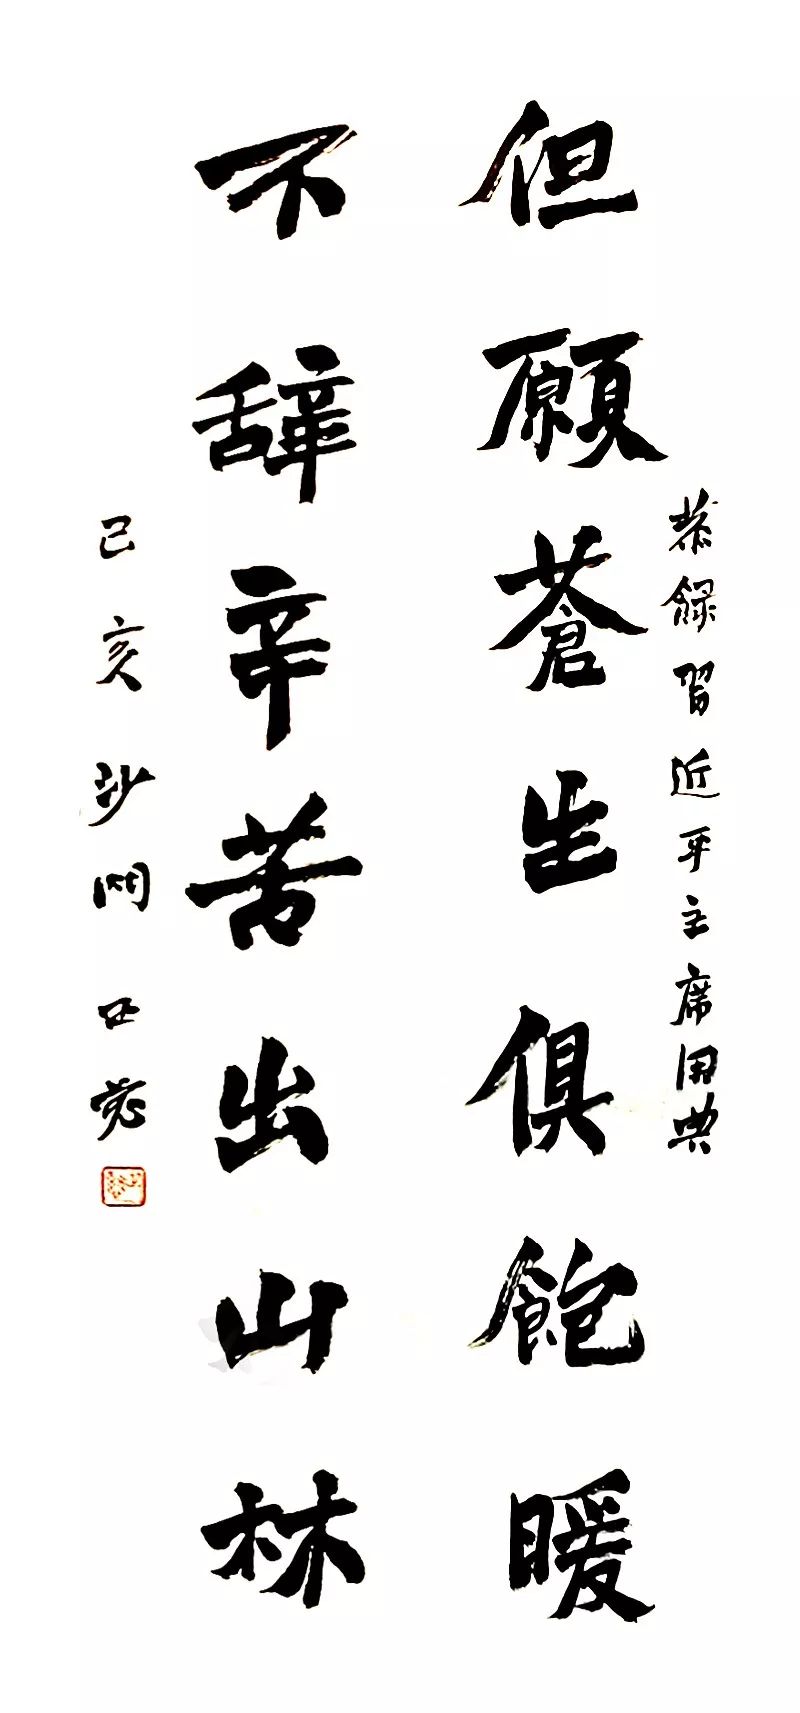 恭錄習近平主席用典
但願蒼生俱飽暖
不辞辛苦出山林
己亥沙門